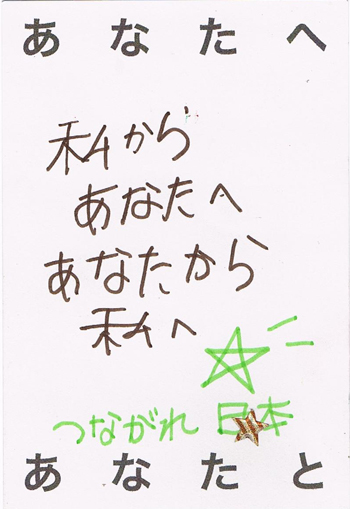 あなたへ
私から
あなたへ
あなたから
私へ
つながれ 日本
あなたと